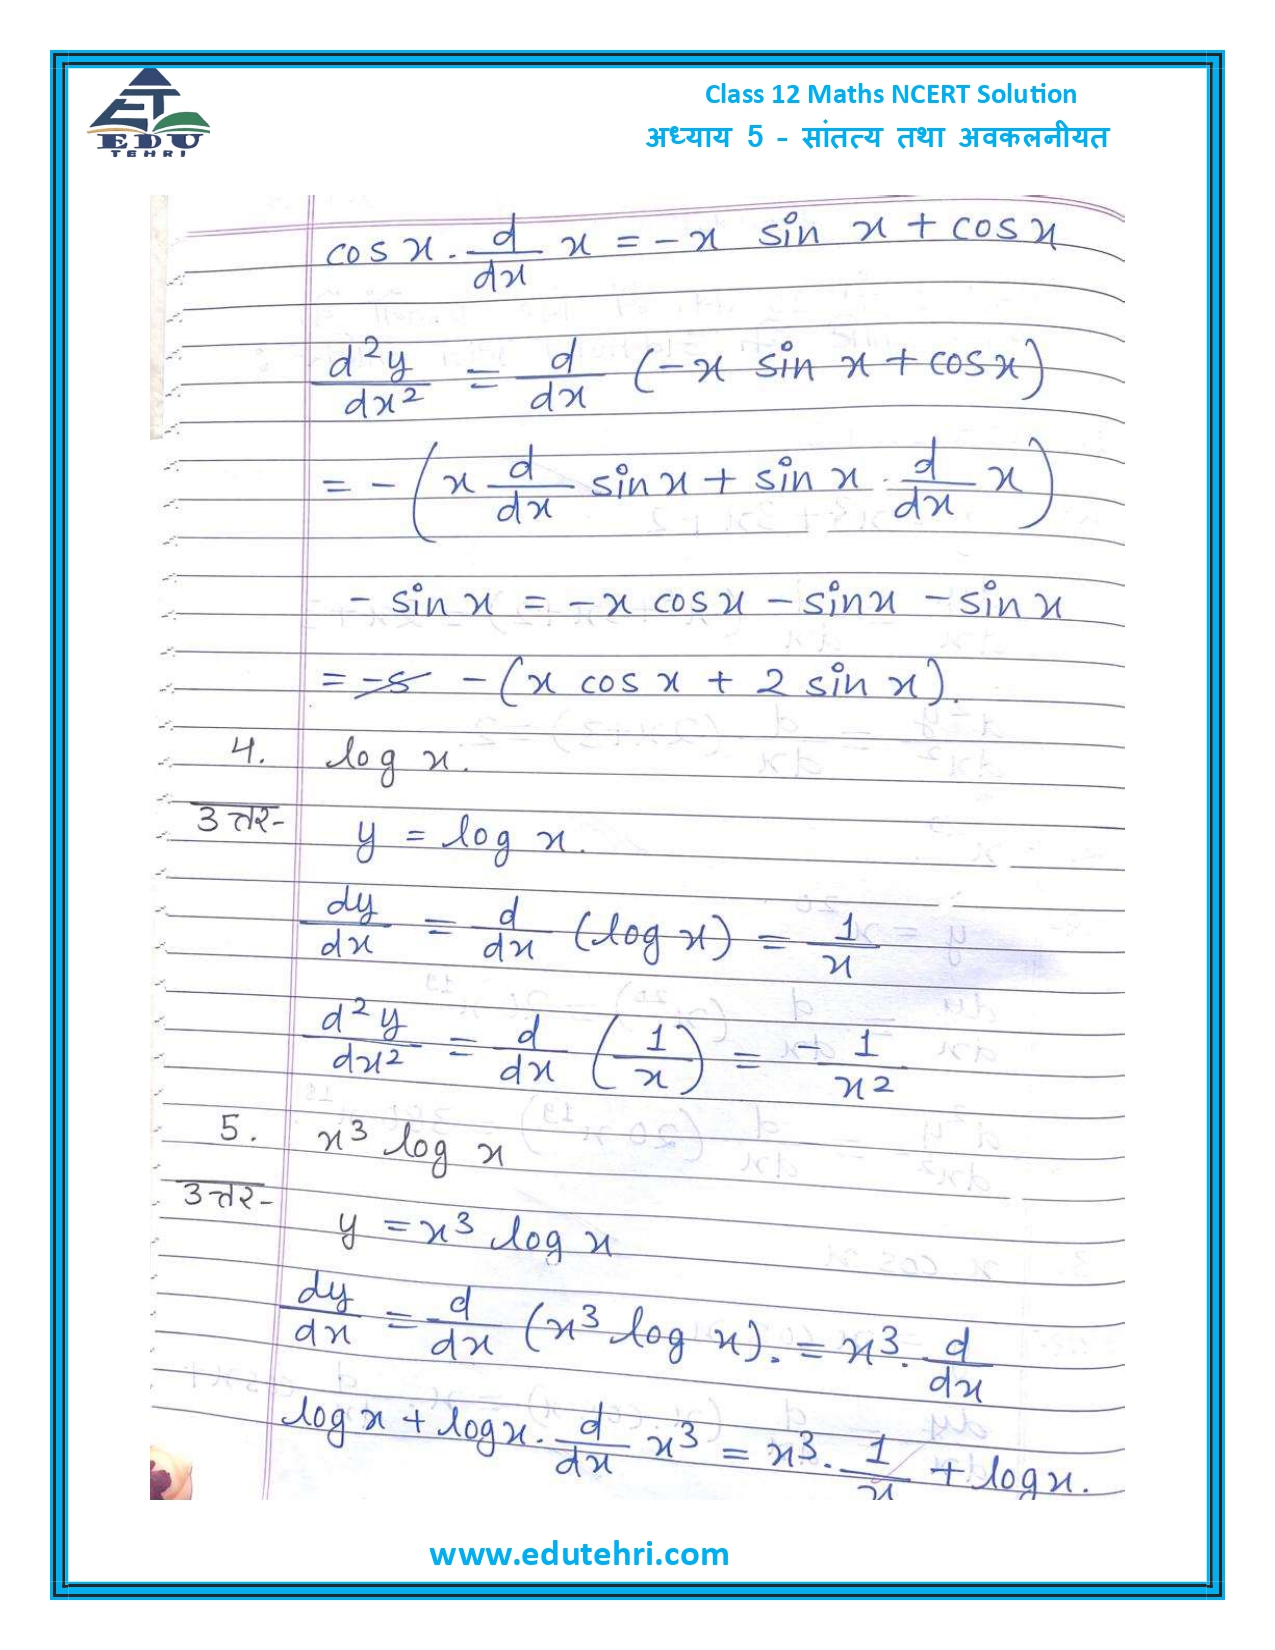 EDU
TEHRI
Class 12 Maths NCERT Solution
अध्याय 5 - सांतत्य तथा अवकलनीयत
cos x . d/dx x = -x sin x + cos x
d²y/dx² = d/dx (-x sin x + cos x)
= - (x d/dx sin x + sin x . d/dx x)
- sin x = -x cos x - sin x - sin x
= - (x cos x + 2 sin x).
4. log x.
उत्तर- y = log x.
dy/dx = d/dx (log x) = 1/x
d²y/dx² = d/dx (1/x) = -1/x²
5. x³ log x
उत्तर- y = x³ log x
dy/dx = d/dx (x³ log x). = x³. d/dx
log x + log x. d/dx x³ = x³. 1/x + log x.
www.edutehri.com